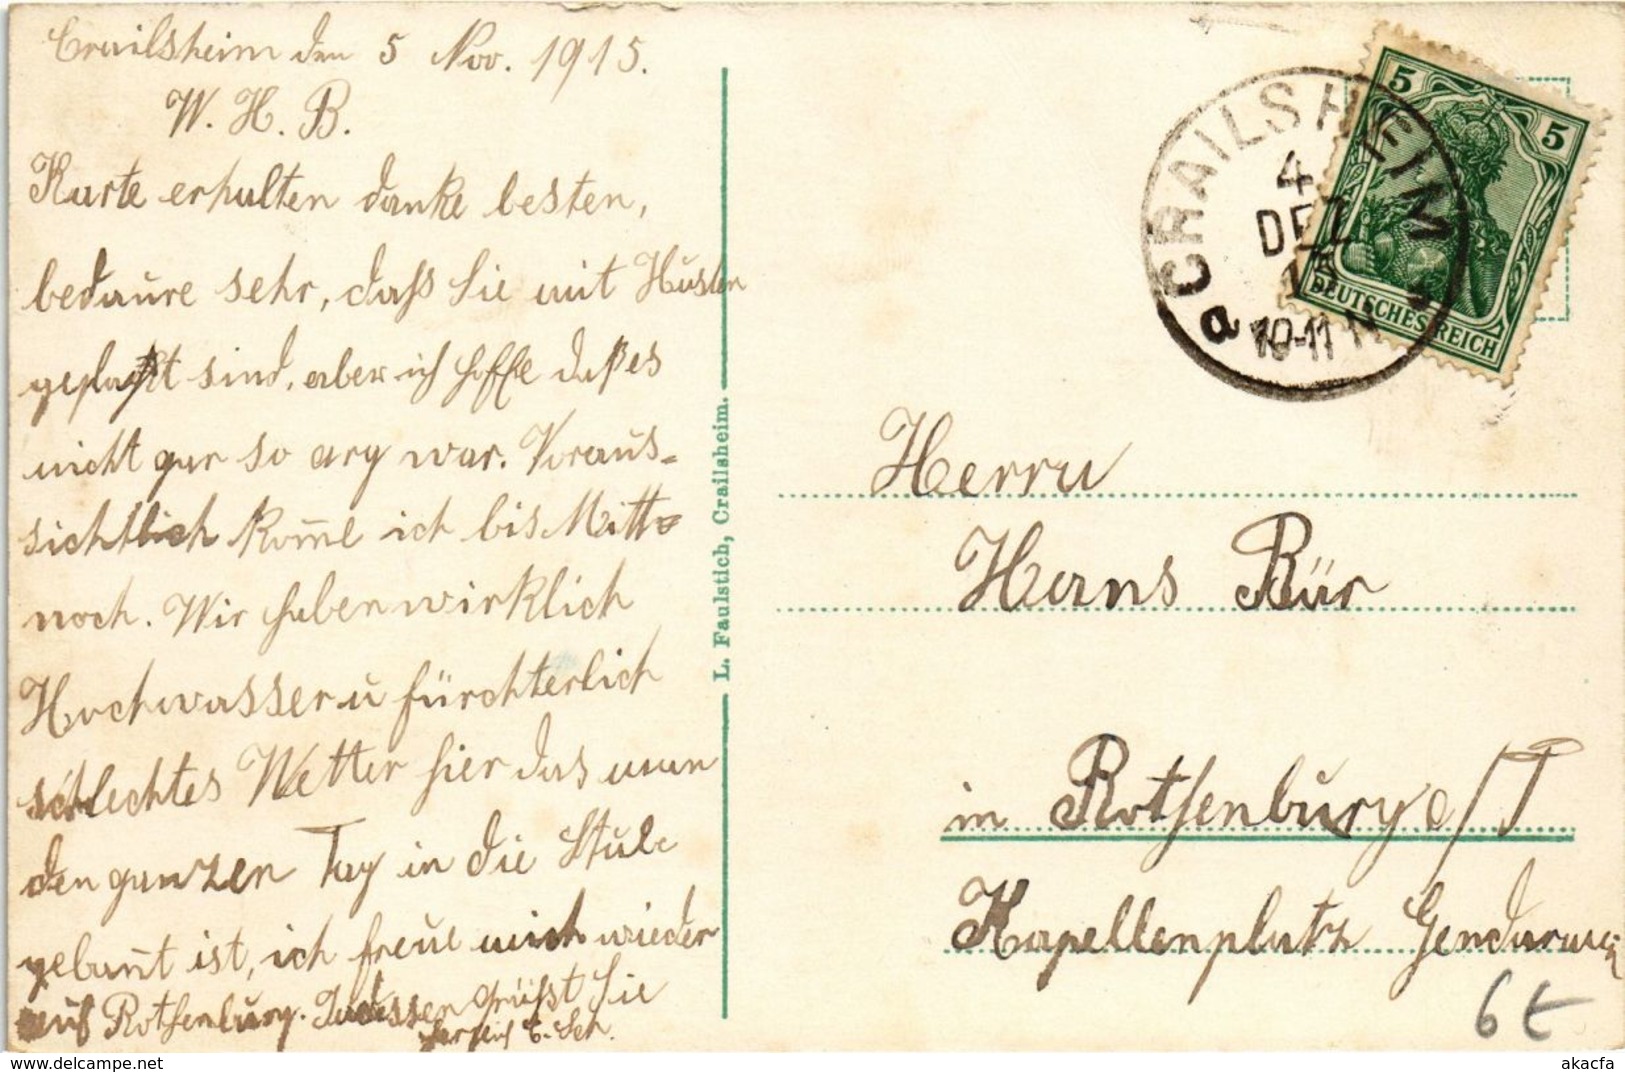 Crailsheim den 5 Nov. 1915.
W. H. B.
Karte erhalten danke besten,
bedaure sehr, daß Sie mit Husten
geplagt sind, aber ich hoffe daß es
nicht gar so arg war. Voraus-
sichtlich kom̅e ich bis Mitt-
woch. Wir haben wirklich
Hochwasser u fürchterlich
schlechtes Wetter hier das man
den ganzen Tag in die Stube
geban̅t ist, ich freue mich wieder
auf Rothenburg. Indessen grüßt Sie
herzlich E. Sch.
L. Faulstich, Crailsheim.
CRAILSHEIM
4
DEZ
15
10-11 N
a
5
5
DEUTSCHES REICH
Herrn
Hans Bär
in Rothenburg o/T
Kapellenplatz
6 €
akacfa